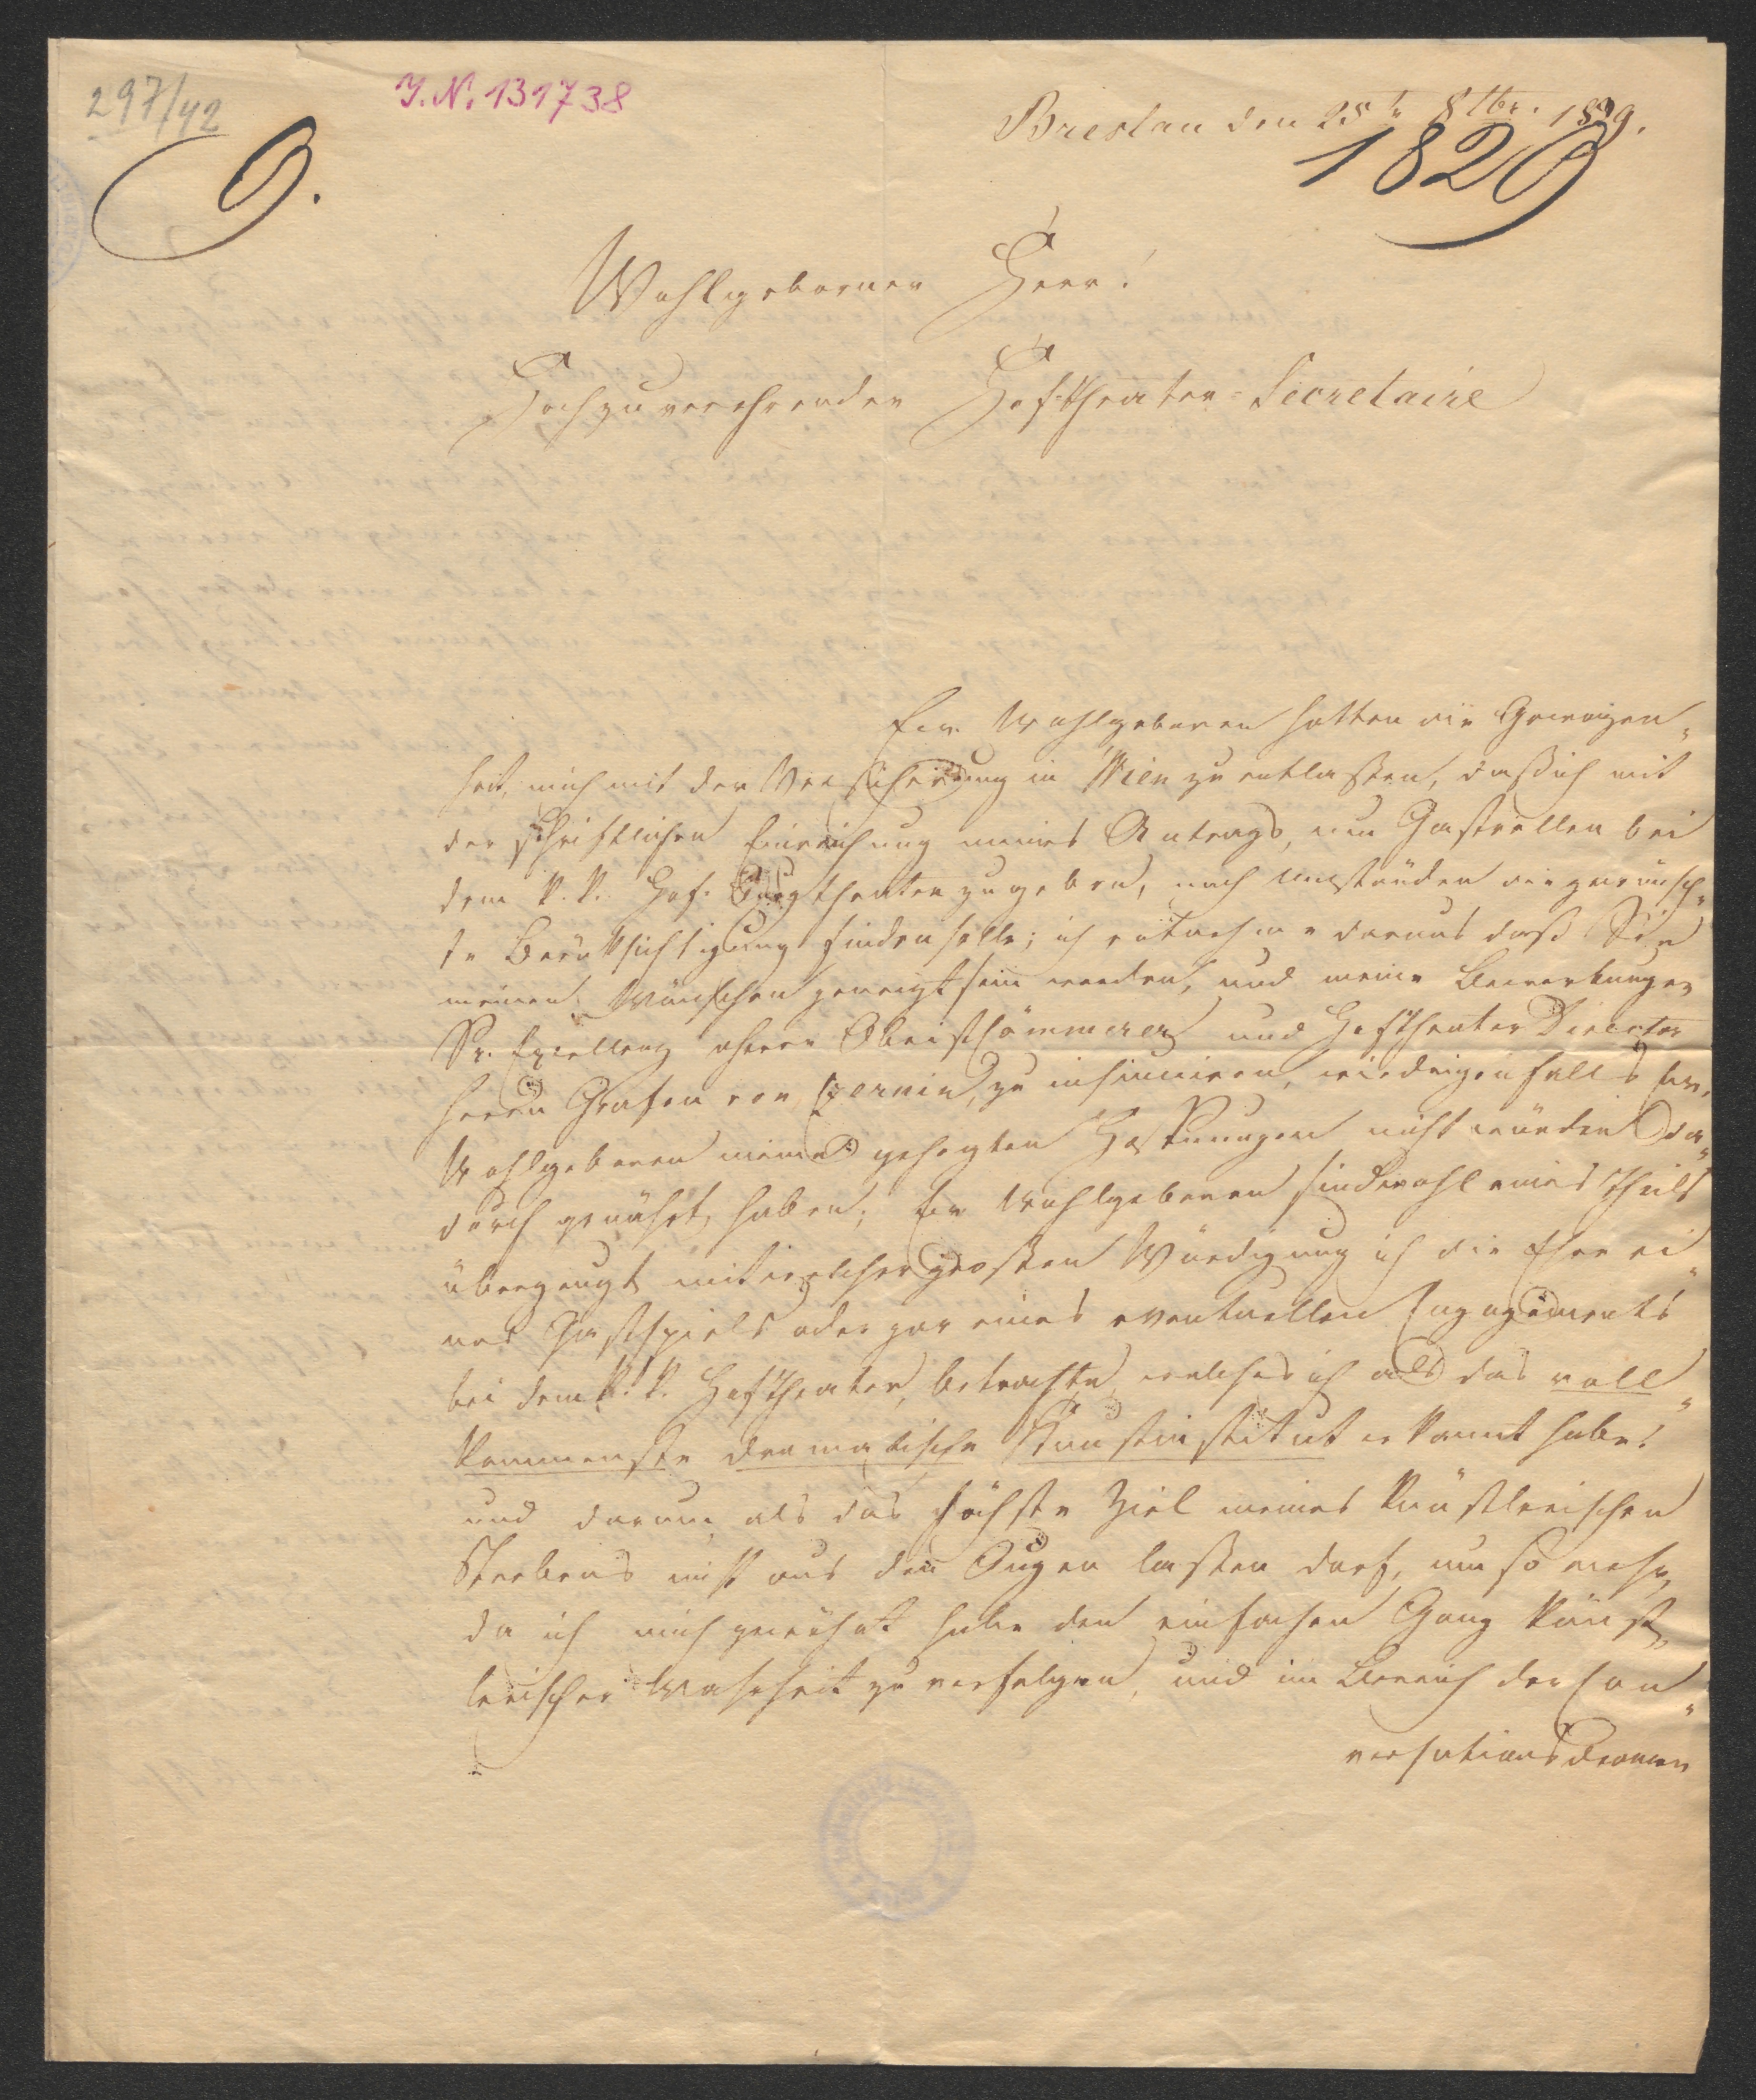 297/42
I.N. 131738
Breslau den 25t 8tbr. 1829.
1829
O.
Wohlgeborner Herr!
Hochzuverehrender Hoftheater-Secretaire
Ew. Wohlgeboren hatten die Gewogen„
heit, mich mit der Versicherung in Wien zu entlaßen, daß ich mit
der schriftlichen Einreichung meines Antrags, um Gastrollen bei
dem k. k. Hof. Burgtheater zu geben, nach Umständen die gewünsch„
te Berüksichtigung finden solle; ich entnehme daraus daß Sie
meinen Wünschen geneigt sein werden, und meine Bewerbungen
Sr. Excellenz Herrn Obristkämmerer und Hoftheater Director
Herrn Grafen von Czernin, zu insinuiren, wiedrigenfalls Ew.
Wohlgeboren meine gehegten Hoffnungen nicht würden da„
durch genährt haben; Ew Wohlgeboren sind wohl eines Theils
überzeugt mit welcher großen Würdigung ich die Ehre ei„
nes Gastspiels oder gar eines eventuellen Engagements
bei dem k. k. Hoftheater, betrachte, welches ich als das voll„
kommenste dramatische Kunstinstitut erkannt habe!
und darum als das höchste Ziel meines künstlerischen
Strebens nicht aus den Augen laßen darf, um so mehr,
da ich mich gewöhnt habe den einfachen Gang künst„
lerischer Wahrheit zu verfolgen, und im Bereich der Con„
versations Dramen